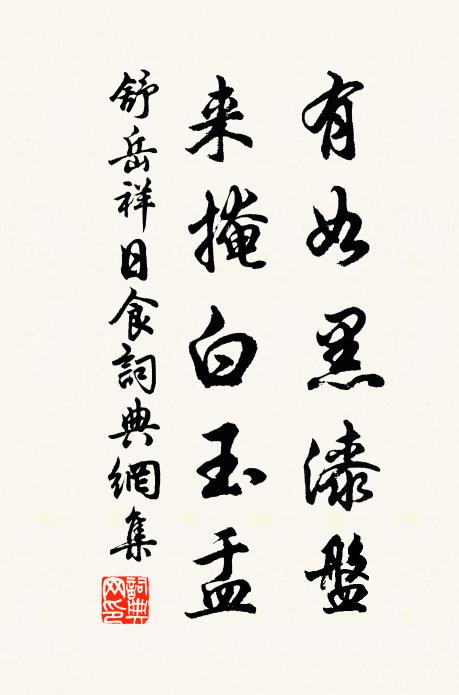 有如黑漆盤
来掩白玉盂
舒岳祥日食詞典網集
詞典網印